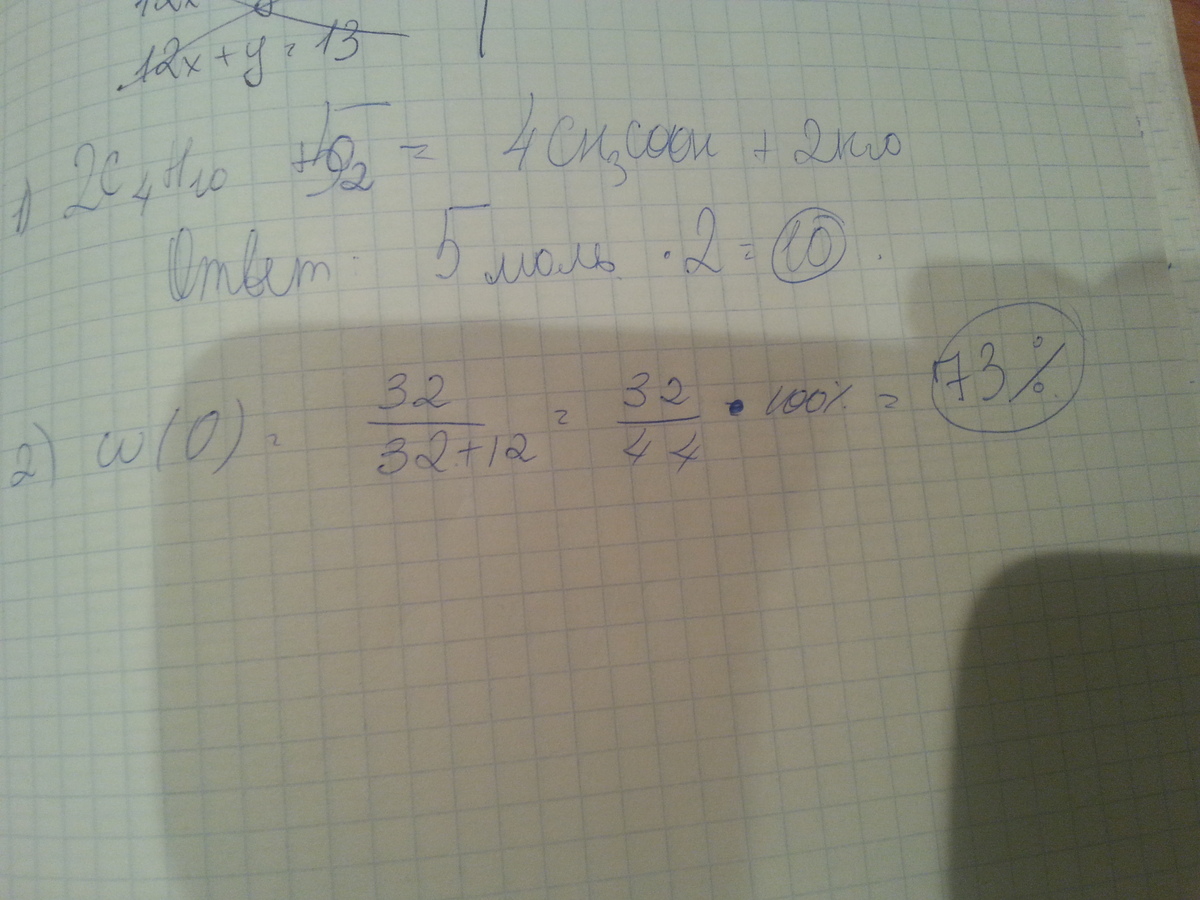 12x
12x + y = 13
1) 2C₄H₁₀ + 5O₂ = 4CH₃COOH + 2H₂O
Ответ: 5 моль · 2 = 10.
2) w(O) = 32/(32+12) = 32/44 · 100% = 73%